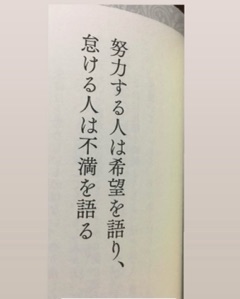 努力する人は希望を語り、
怠ける人は不満を語る